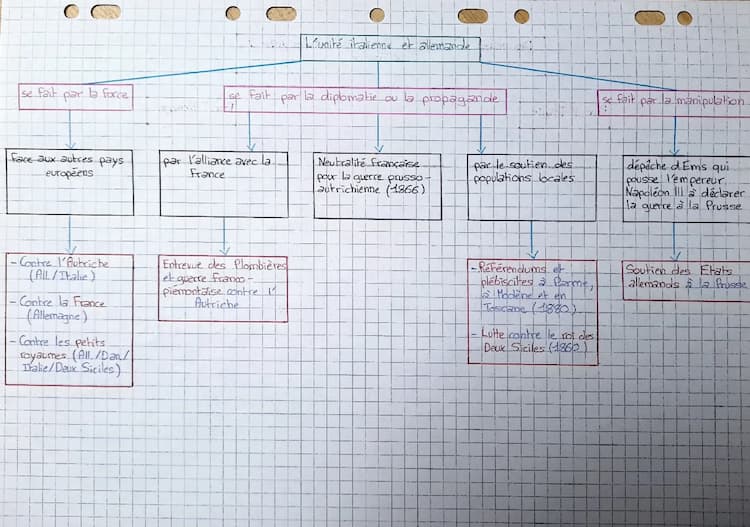 L'unité italienne et allemande
se fait par la force
se fait par la diplomatie ou la propagande
se fait par la manipulation
face aux autres pays
européens
par l'alliance avec la
France
Neutralité Française
pour la guerre prusso-
autrichienne (1866)
par le soutien des
populations locales
dépêche d'Ems qui
pousse l'empereur
Napoléon III à déclarer
la guerre à la Prusse
- Contre l'Autriche
(All./Italie)
- Contre la France
(Allemagne)
- Contre les petits
royaumes (All./Dan/
Italie/Deux Siciles)
Entrevue des Plombières
et guerre Franco-
piémontaise contre l'
Autriche
- Référendums et
plébiscites à Parme,
à Modène et en
Toscane (1860)
- Lutte contre le roi des
Deux Siciles (1860)
Soutien des Etats
allemands à la Prusse